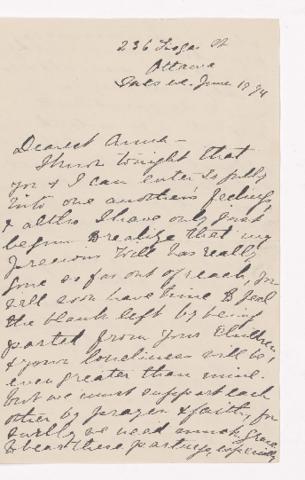 236
Ottawa
Tues eve. June 19/94
Dearest Anna –
I know tonight that
you & I can enter so fully
into one another's feelings,
& altho I have only just
begun to realize that my
precious Will has really
gone so far out of reach, you
will soon have time to feel
the blank left by being
parted from your children,
& your loneliness will be
even greater than mine.
but we must support each
other by prayer & faith, for
surely we need much grace
to bear these partings, especially